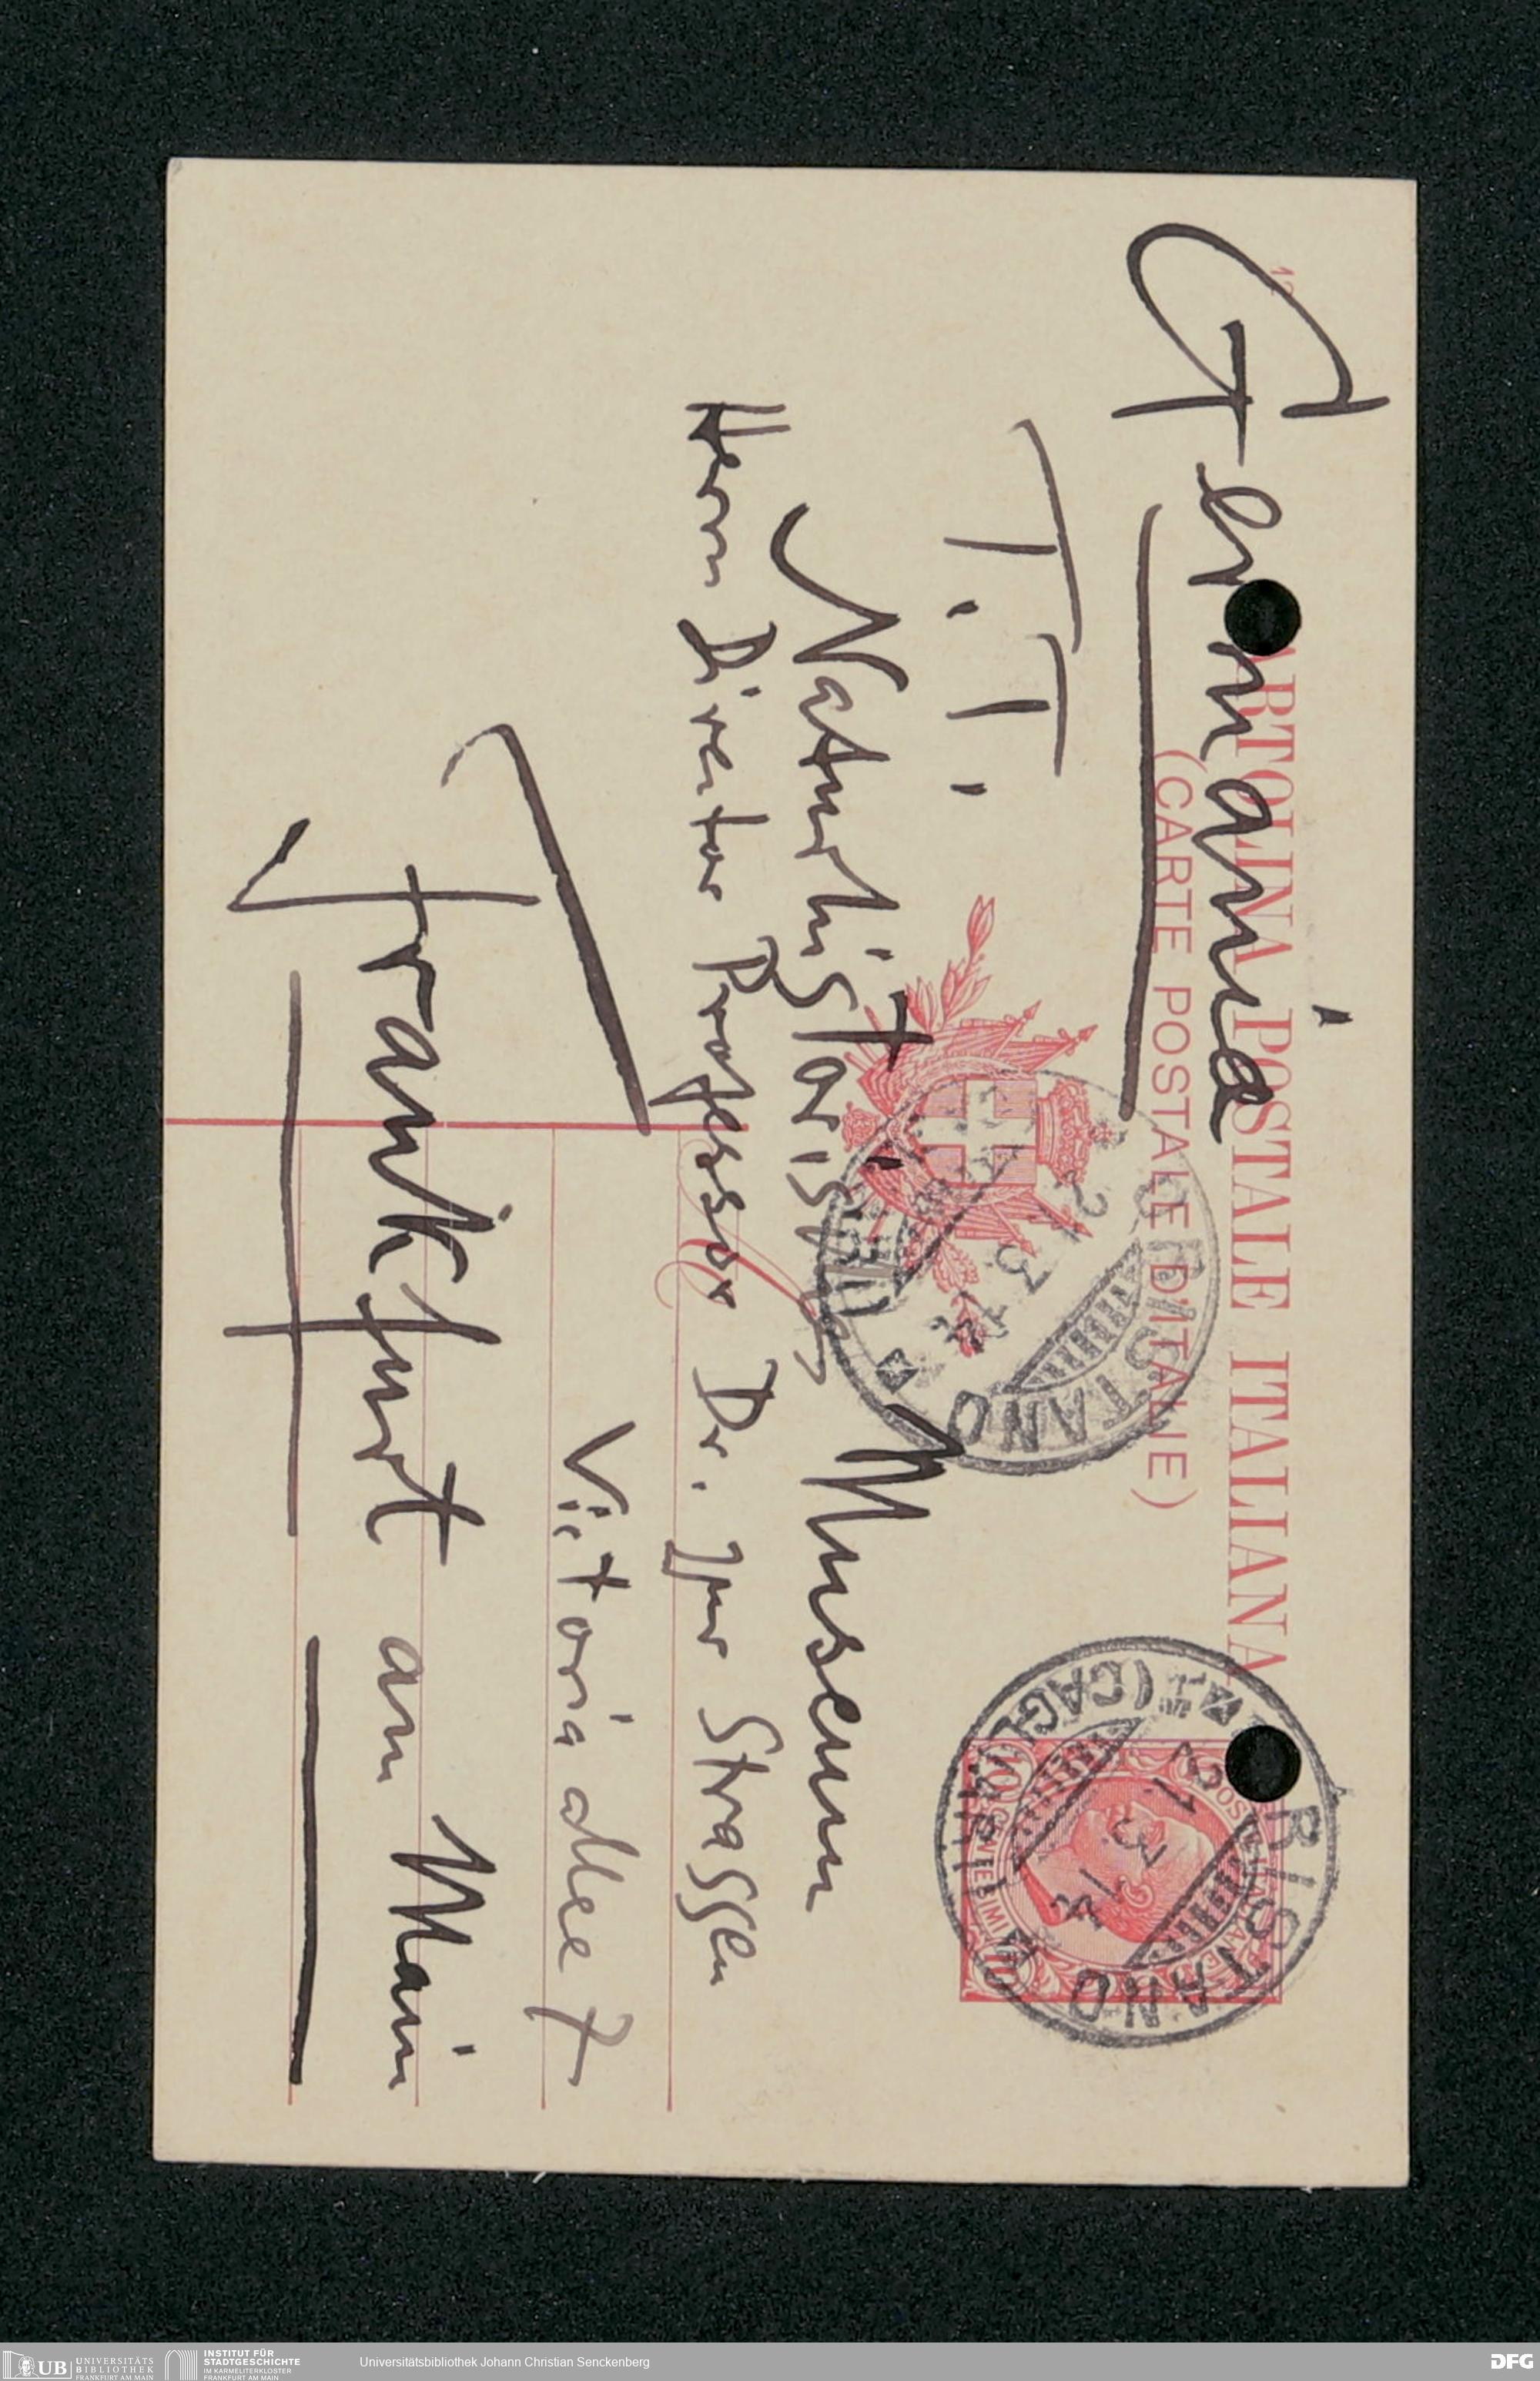 CARTOLINA POSTALE ITALIANA
(CARTE POSTALE D'ITALIE)
Germania
T. T.
Naturhistorisch Museum
Herrn Direktor Professor Dr. zur Strassen
Victoria allee 7
Frankfurt am Main
ORISTANO
(CAGLIARI)
2 1 3 14
ORISTANO
(CAGLIARI)
21 3 14
POSTE ITALIANE
10 CENTESIMI 10
UB
UNIVERSITÄTS
BIBLIOTHEK
FRANKFURT AM MAIN
INSTITUT FÜR
STADTGESCHICHTE
IM KARMELITERKLOSTER
FRANKFURT AM MAIN
Universitätsbibliothek Johann Christian Senckenberg
DFG